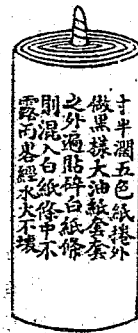 寸半濶五色紙捲外
做黑様大油紙套套
之外遍貼碎白紙條
則混入白紙條中不
露雨畧經水火不壊